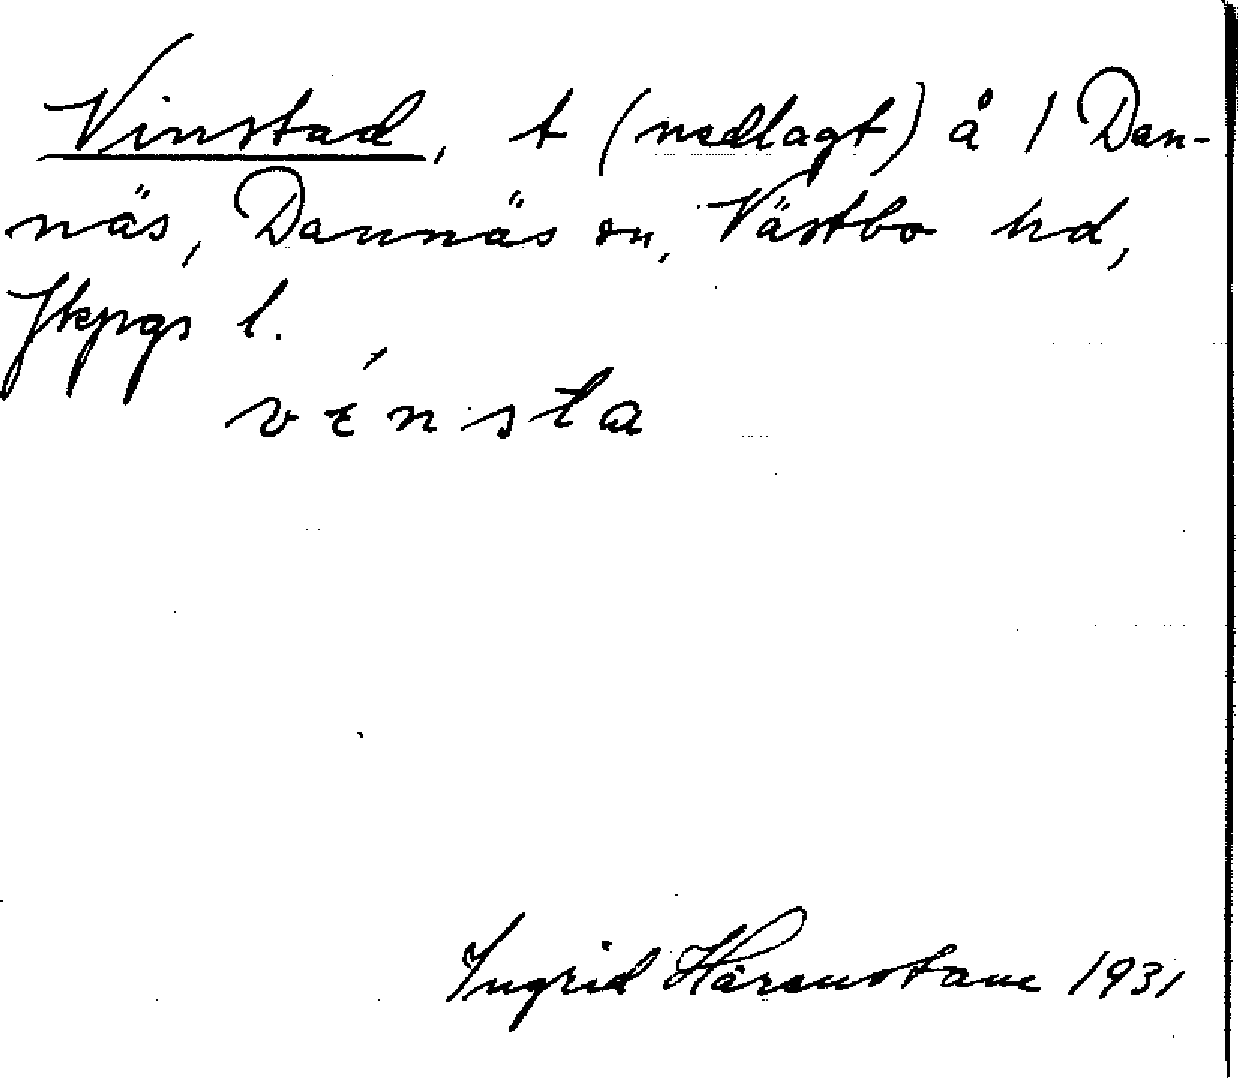 Vinstad, t (nedlagt) å 1 Dan-
näs, Dannäs sn, Västbo hd,
Jkpgs l.
vı́nsta
Ingrid Härenstam 1931